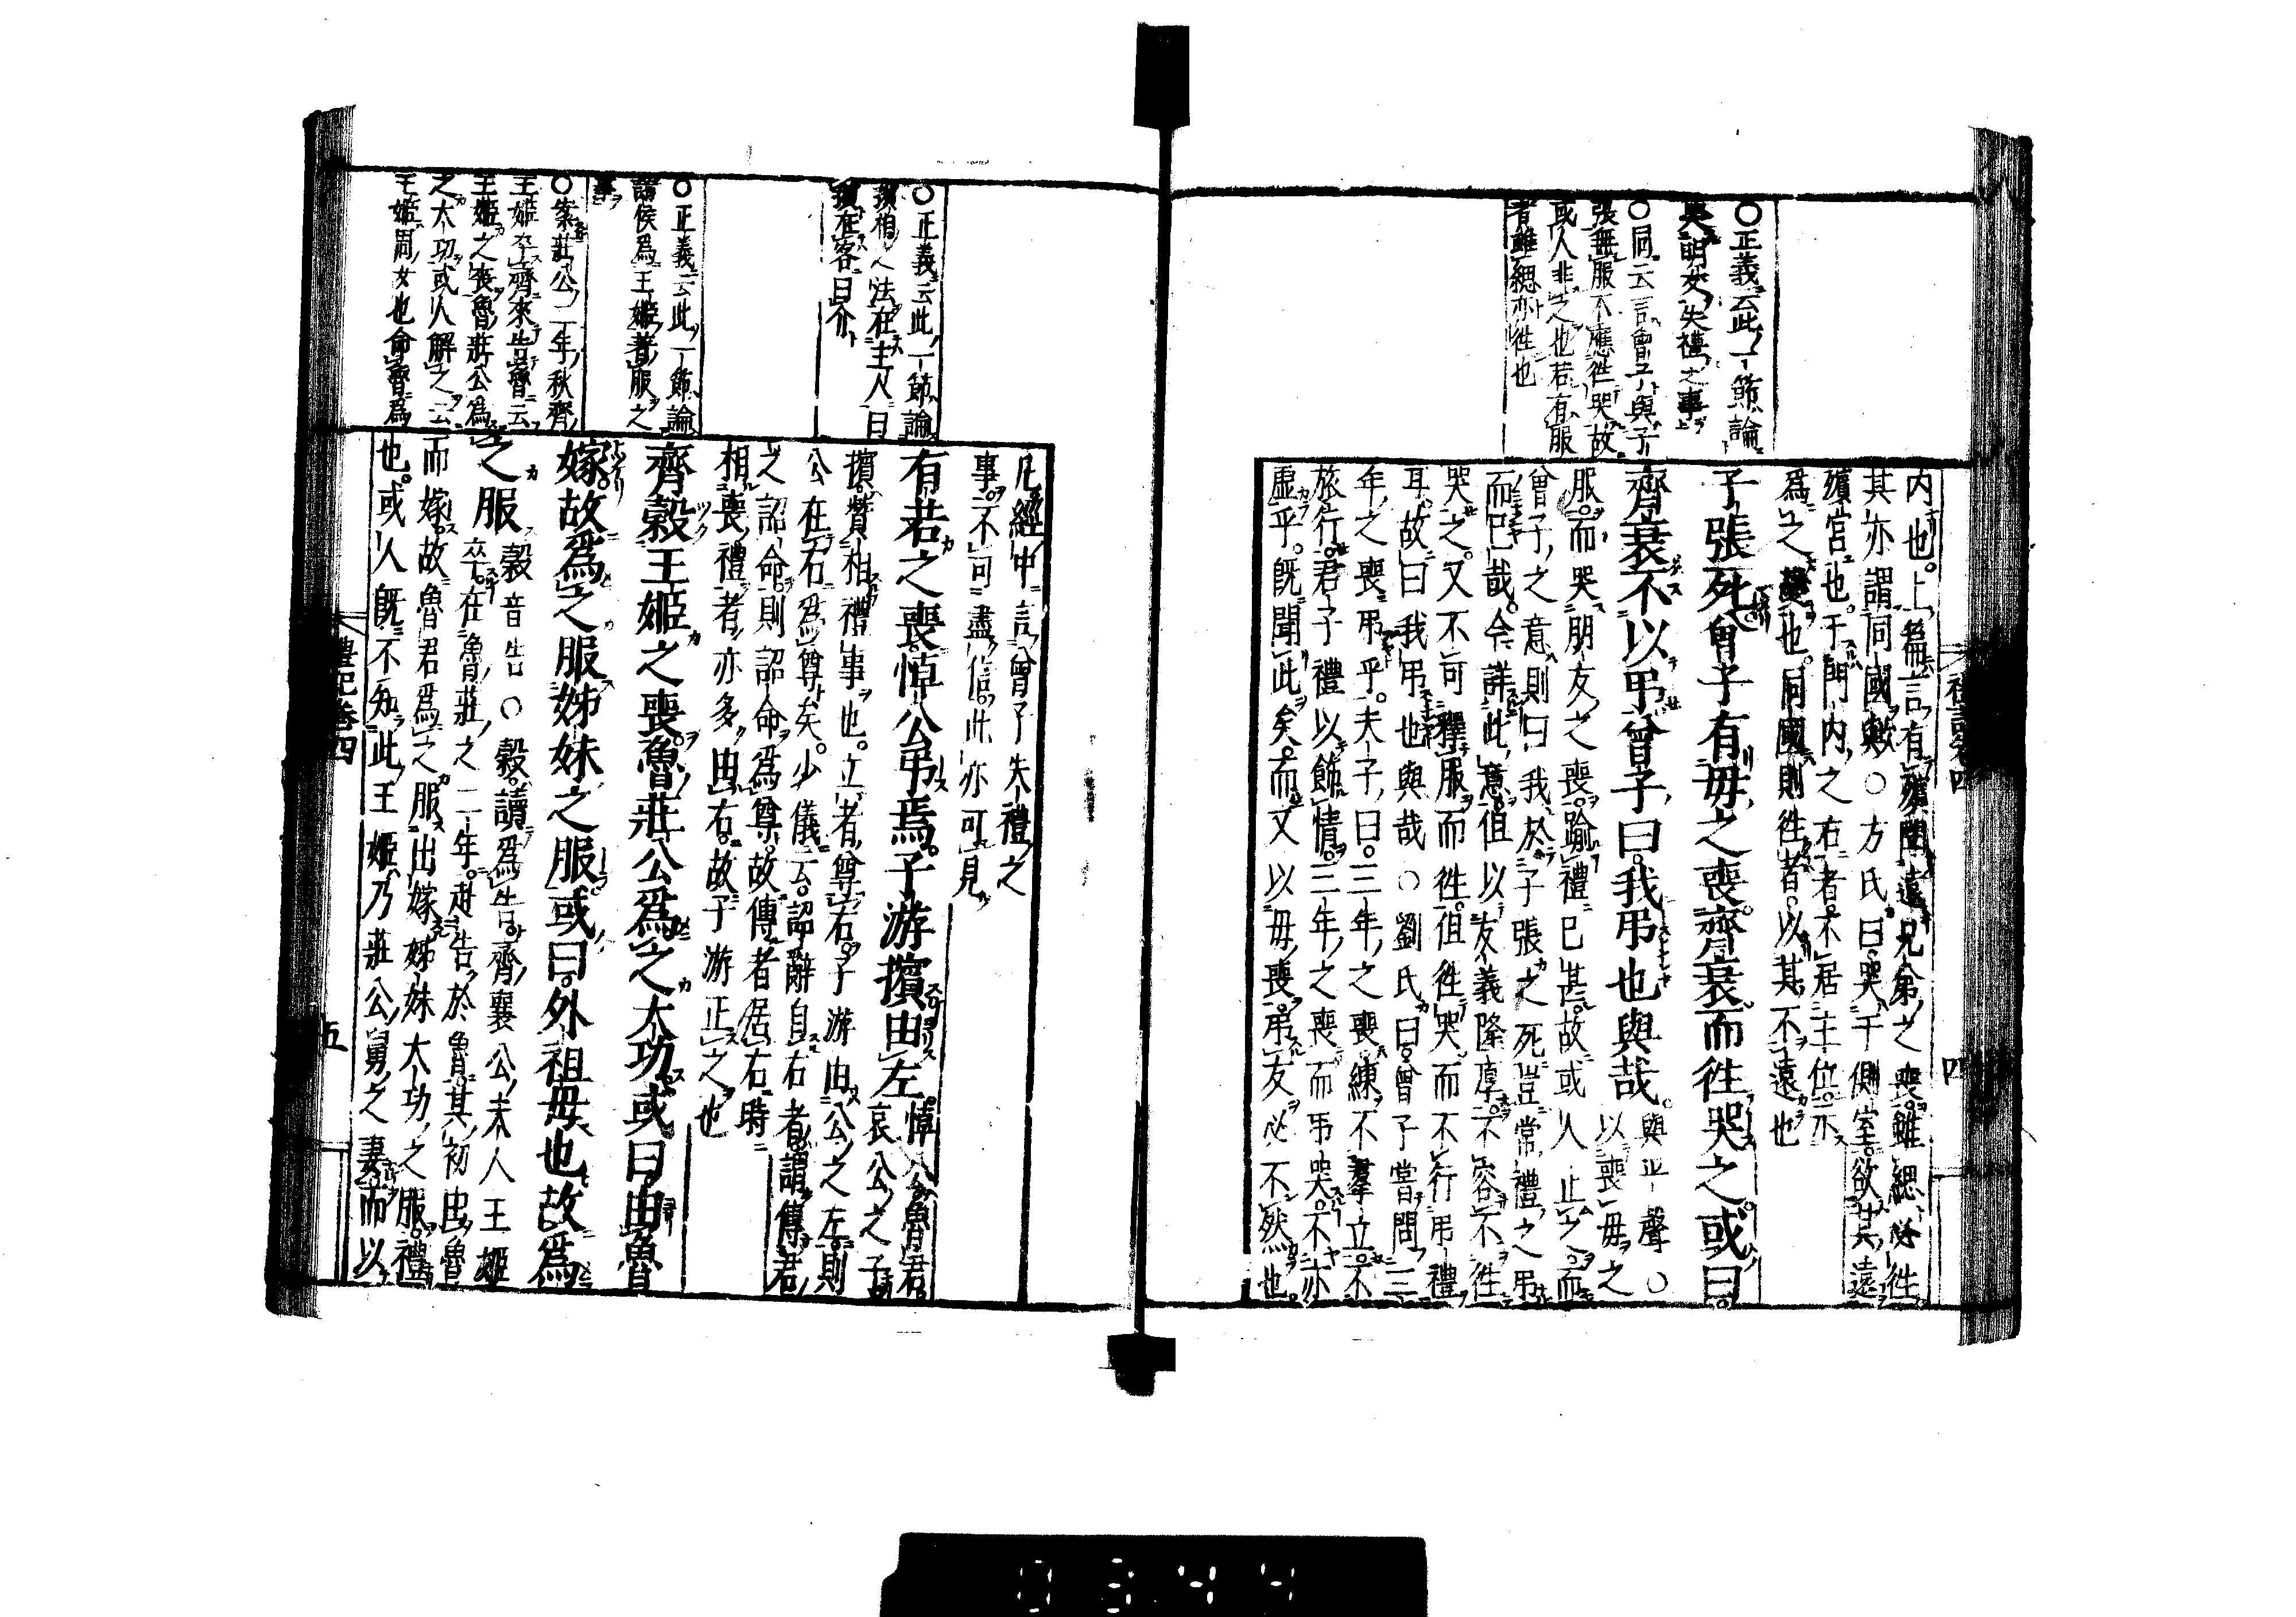 ○正義云此一節論
哭朋友失禮之事
○同云言曾子與子
張無服不應徃哭故
或人非之也若有服
者雖緦亦徃也
内也。上篇言有殯聞遠兄弟之喪。雖緦必徃。
其亦謂同國歟○方氏曰。哭于側室。欲其遠
殯宮也。于門内之右者。不居主位。示
爲之變也。同國則徃者。以其不遠也
子張死。曾子有母之喪。齊衰而徃哭之。或曰。
齊衰不以弔。曾子曰。我弔也與哉。
與平聲○
以喪母之
服。而哭朋友之喪。踰禮已甚。故或人止之。而
曾子之意。則曰我於子張之死。豈常禮之弔
而已哉。今詳此意。但以友義隆厚。不容不徃
哭之。又不可釋服而徃。但徃哭而不行弔禮
耳。故曰我弔也與哉○劉氏曰。曾子嘗問三
年之喪弔乎。夫子曰。三年之喪練。不羣立。不
旅行。君子禮以飾情。三年之喪而弔哭。不亦
虚乎。既聞此矣。而又以母喪。弔友。必不然也。
禮記卷四
四
○正義云此一節論
擯相之法在主人曰
擯在客曰介
○正義云此一節論
諸侯爲王姬著服之
事
○案莊公二年秋齊
王姬卒齊來告魯云
王姬之喪魯莊公爲
之大功或人解之云
王姬周女也命魯爲
凡經中言曾子失禮之
事。不可盡信。此亦可見
有若之喪。悼公弔焉。子游擯由左
悼公。魯君。
哀公之子
擯。贊相禮事也。立者尊右。子游由公之左。則
公在右爲尊矣。少儀云。詔辭自右者。謂傳君
之詔命。則詔命爲尊。故傳者居右。時
相喪禮者。亦多由右。故子游正之也
齊穀王姬之喪。魯莊公爲之大功。或曰。由魯
嫁。故爲之服姊妹之服。或曰。外祖母也。故爲
之服
穀音告○穀。讀爲告。齊襄公夫人王姬
卒。在魯莊之二年。赴告於魯。其初由魯
而嫁。故魯君爲之服出嫁姊妹大功之服。禮
也。或人既不知此王姬乃莊公舅之妻。而以
禮記卷四
五